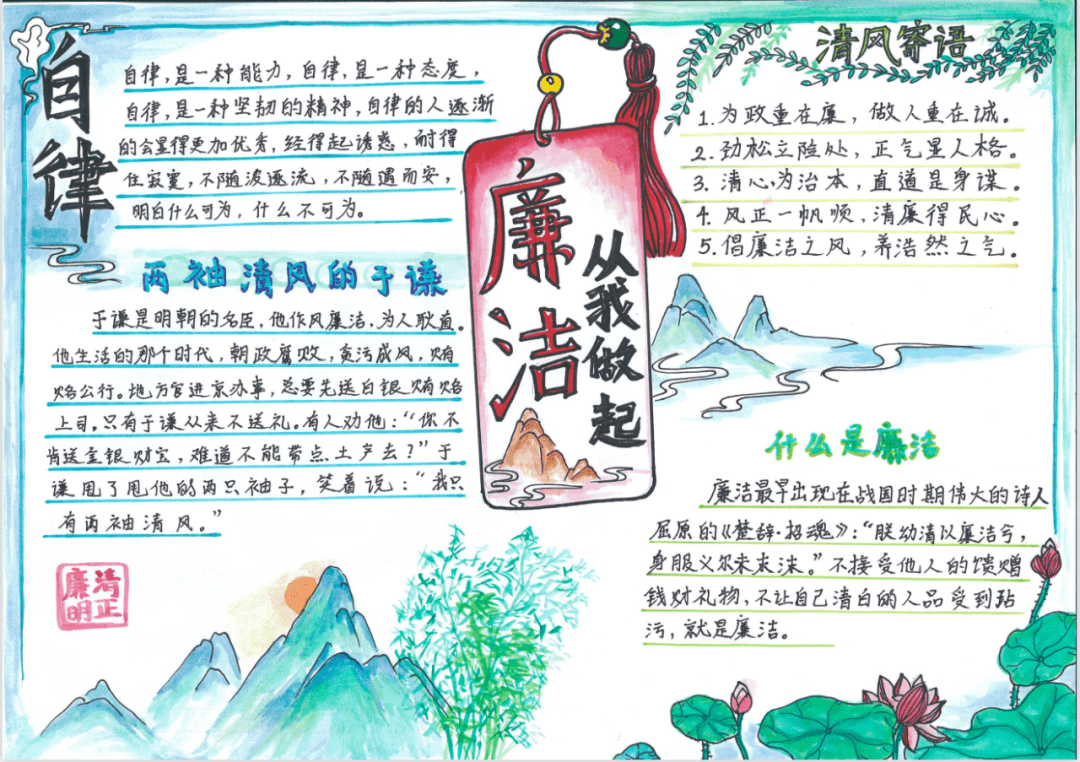 自律
自律，是一种能力，自律，是一种态度，
自律，是一种坚韧的精神，自律的人逐渐
的会显得更加优秀，经得起诱惑，耐得
住寂寞，不随波逐流，不随遇而安，
明白什么可为，什么不可为。
两袖清风的于谦
于谦是明朝的名臣，他作风廉洁，为人耿直。
他生活的那个时代，朝政腐败，贪污成风，贿
赂公行。地方官进京办事，总要先送白银贿赂
上司。只有于谦从来不送礼。有人劝他：“你不
肯送金银财宝，难道不能带点土产去？”于
谦甩了甩他的两只袖子，笑着说：“我只
有两袖清风。”
清正
廉明
廉洁
从我做起
清风寄语
1. 为政重在廉，做人重在诚。
2. 劲松立险处，正气显人格。
3. 清心为治本，直道是身谋。
4. 风正一帆顺，清廉得民心。
5. 倡廉洁之风，养浩然之气。
什么是廉洁
廉洁最早出现在战国时期伟大的诗人
屈原的《楚辞·招魂》：“朕幼清以廉洁兮，
身服义尔未沫。”不接受他人的馈赠
钱财礼物，不让自己清白的人品受到玷
污，就是廉洁。